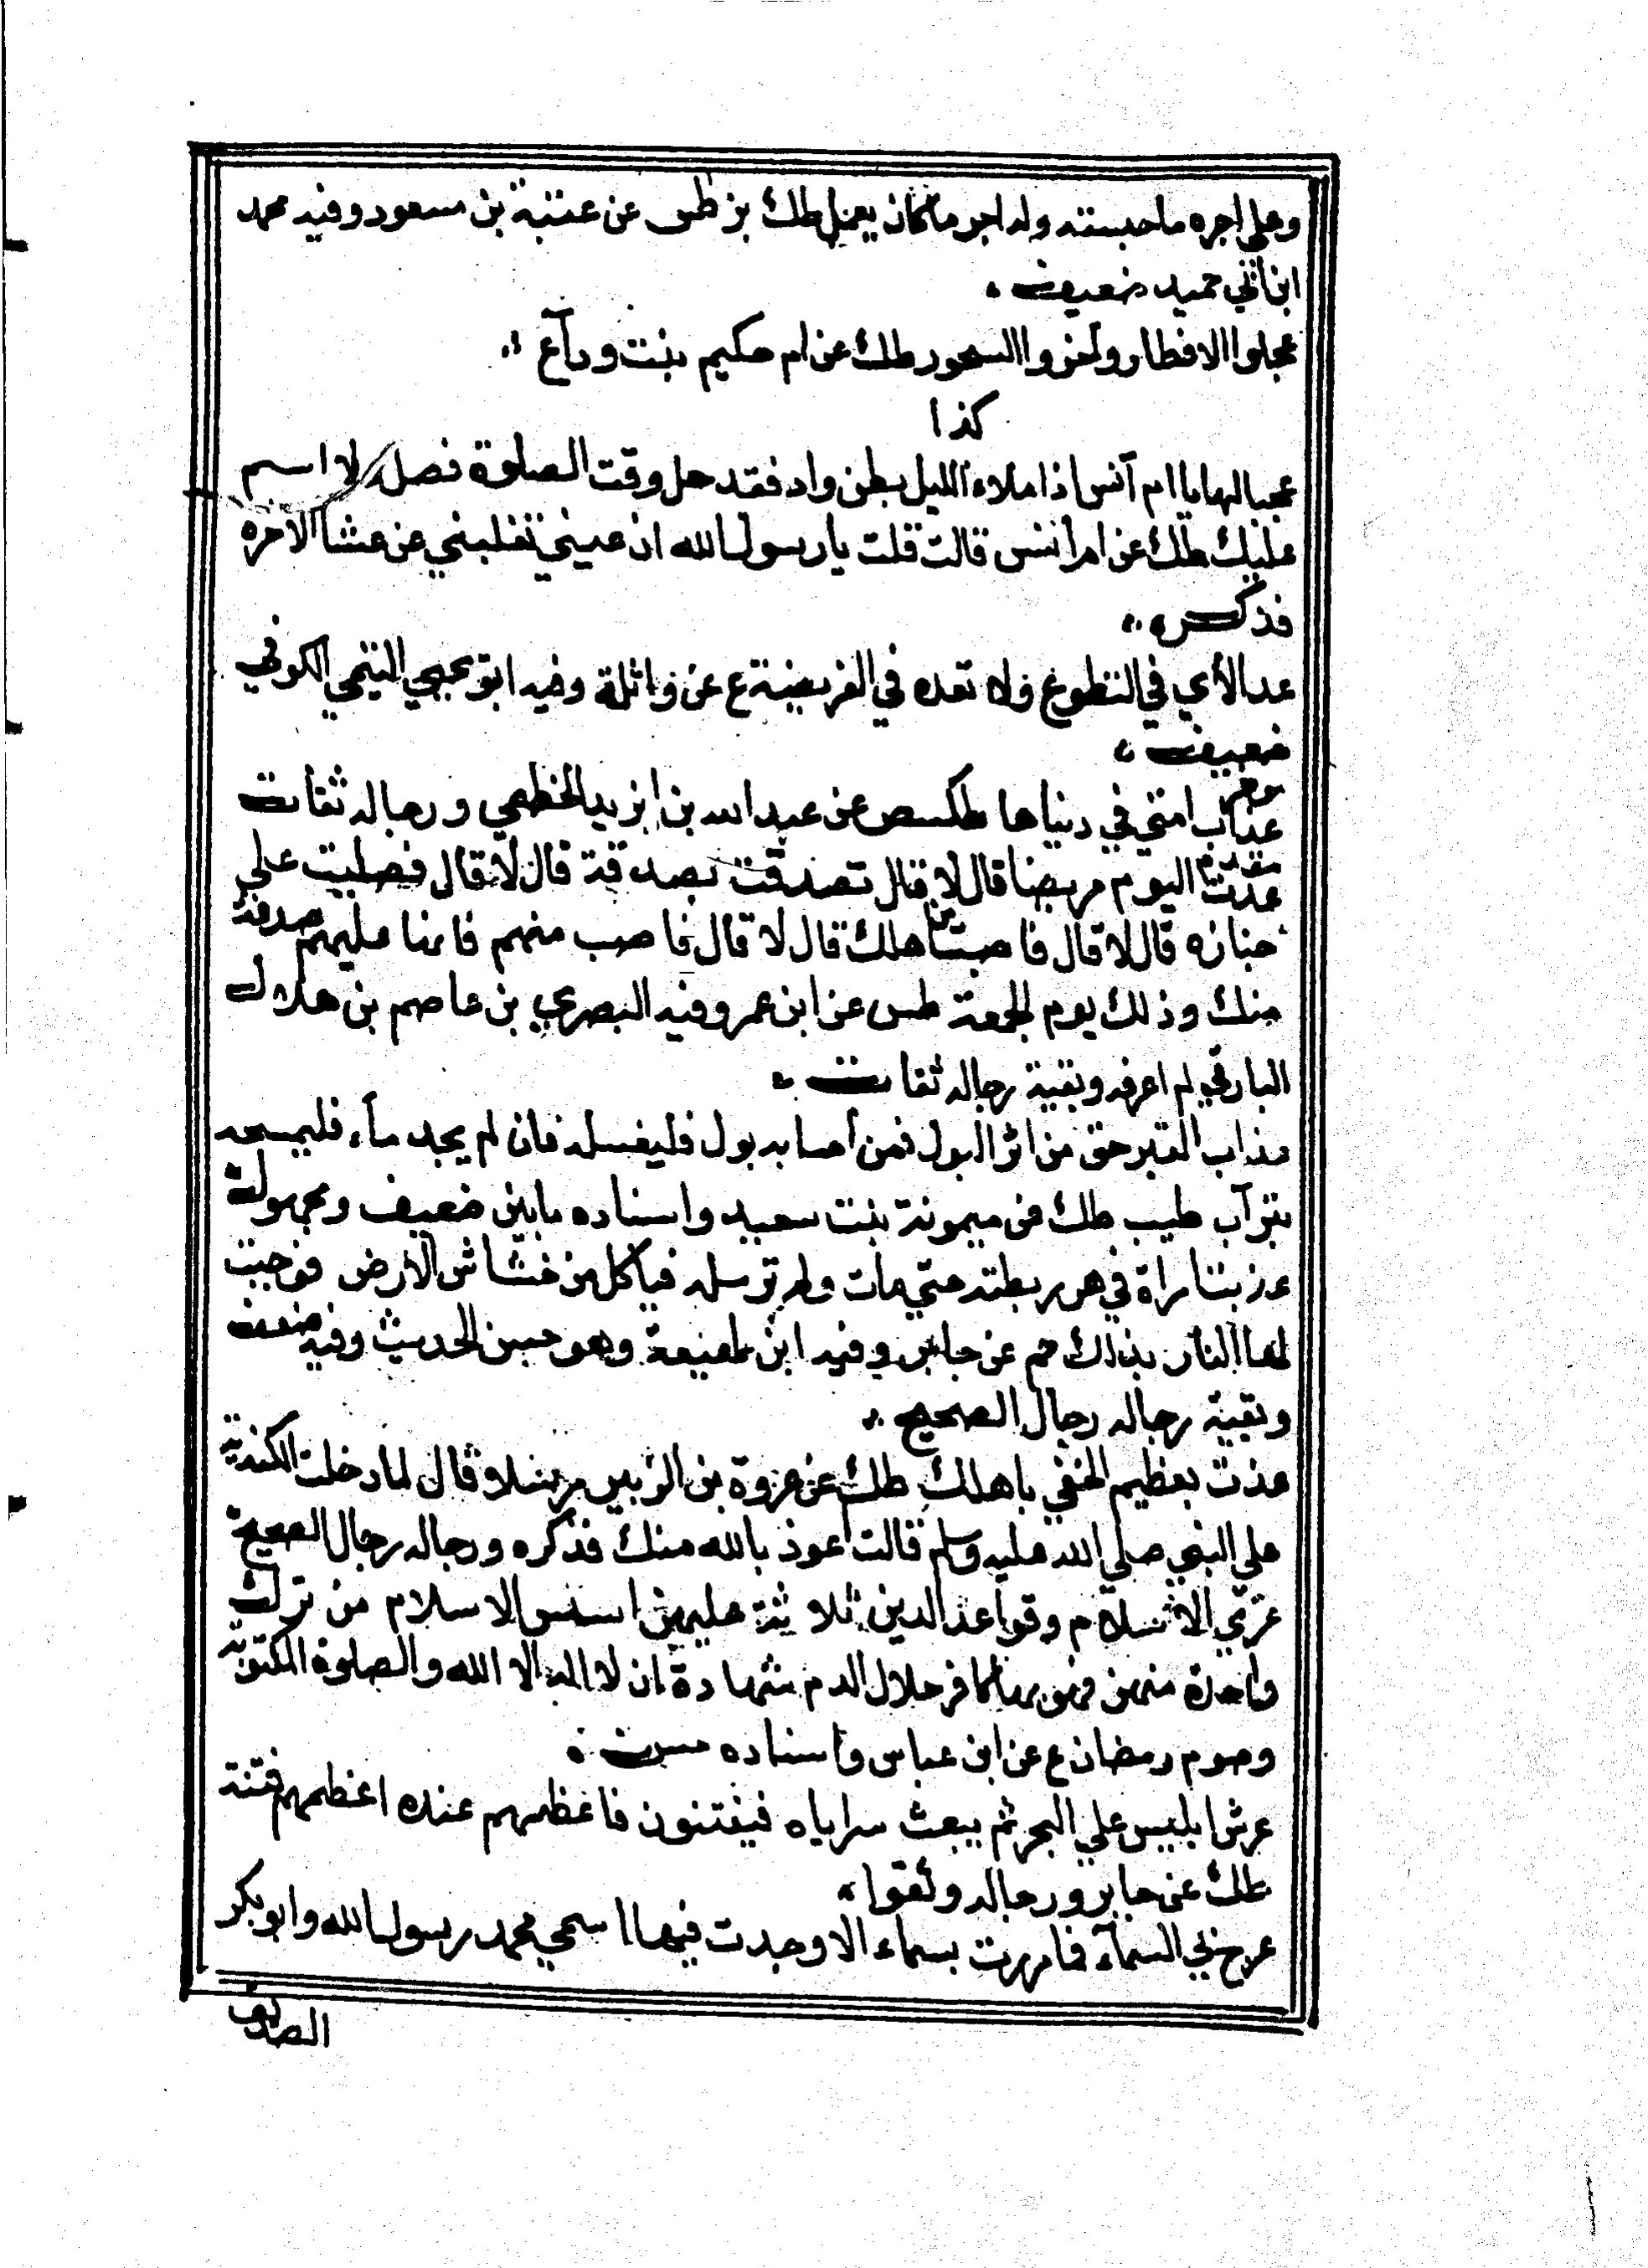 وعلي اجره ما حبسته وله اجر ما كان يعمل طك بز طس عن عتبة بن مسعود وفيه محمد
ابن ابي حميد ضعيف
عجلوا الافطار واخروا السحور طك عن ام حكيم بنت وداع
كذا
عجبا لها يا ام انس اذا ملاء الليل بطن واد فقد حل وقت الصلوة فصل لا اسم
عليك طك عن ام انس قالت قلت يا رسول الله ان عيني تغلبني عن عشا الاخرة
فذكره
عد الآي في التطوع ولا تعده في الفريضة ع عن واثلة وفيه ابو يحيى التيمي الكوفي
ضعيف
عذاب امتي في دنياها طكسص عن عبد الله بن يزيد الخطمي ورجاله ثقات
عدت اليوم مريضا قال لا قال تصدقت بصدقة قال لا قال فصليت علي
جنازه قال لا قال فاصبت من اهلك قال لا قال فاصب منهم فانها عليهم صدقة
منك وذلك يوم الجمعة طس عن ابن عمر وفيه البصري بن عاصم بن هلال
البارقي لم اعرفه وبقية رجاله ثقات
عذاب القبر حق من اثر البول فمن اصابه بول فليغسله فان لم يجد ماء فليمسحه
بتراب طيب طك عن ميمونة بنت سعيد واسناده ما بين ضعيف ومجهول
عذبت امراة في هر ربطته حتي مات ولم ترسله فياكل من خشاش الارض فوجبت
لها النار بذلك حم عن جابر وفيه ابن لهيعة وهو حسن الحديث وفيه ضعف
وبقية رجاله رجال الصحيح
عذت بعظيم الحقي باهلك طك عن عروة بن الزبير مرسلا وقال لما دخلت الكندية
علي النبي صلي الله عليه وسلم قالت اعوذ بالله منك فذكره ورجاله رجال الصحيح
عري الاسلام وقواعد الدين ثلاثة عليهن اسس الاسلام من ترك
واحدة منهن فهو بها كافر حلال الدم شهادة ان لا اله الا الله والصلوة المكتوبة
وصوم رمضان ع عن ابن عباس واسناده حسن
عرش ابليس علي البحر ثم يبعث سراياه فيفتنون فاعظمهم عنده اعظمهم فتنة
طك عن جابر ورجاله وثقوا
عرج بي السماء فما مررت بسماء الا وجدت فيها اسمي محمد رسول الله وابو بكر
الصديق